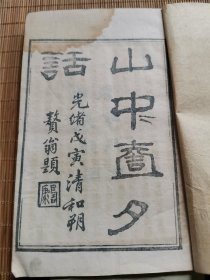 山中壹夕
話
光緒戊寅清和朔
贅翁題